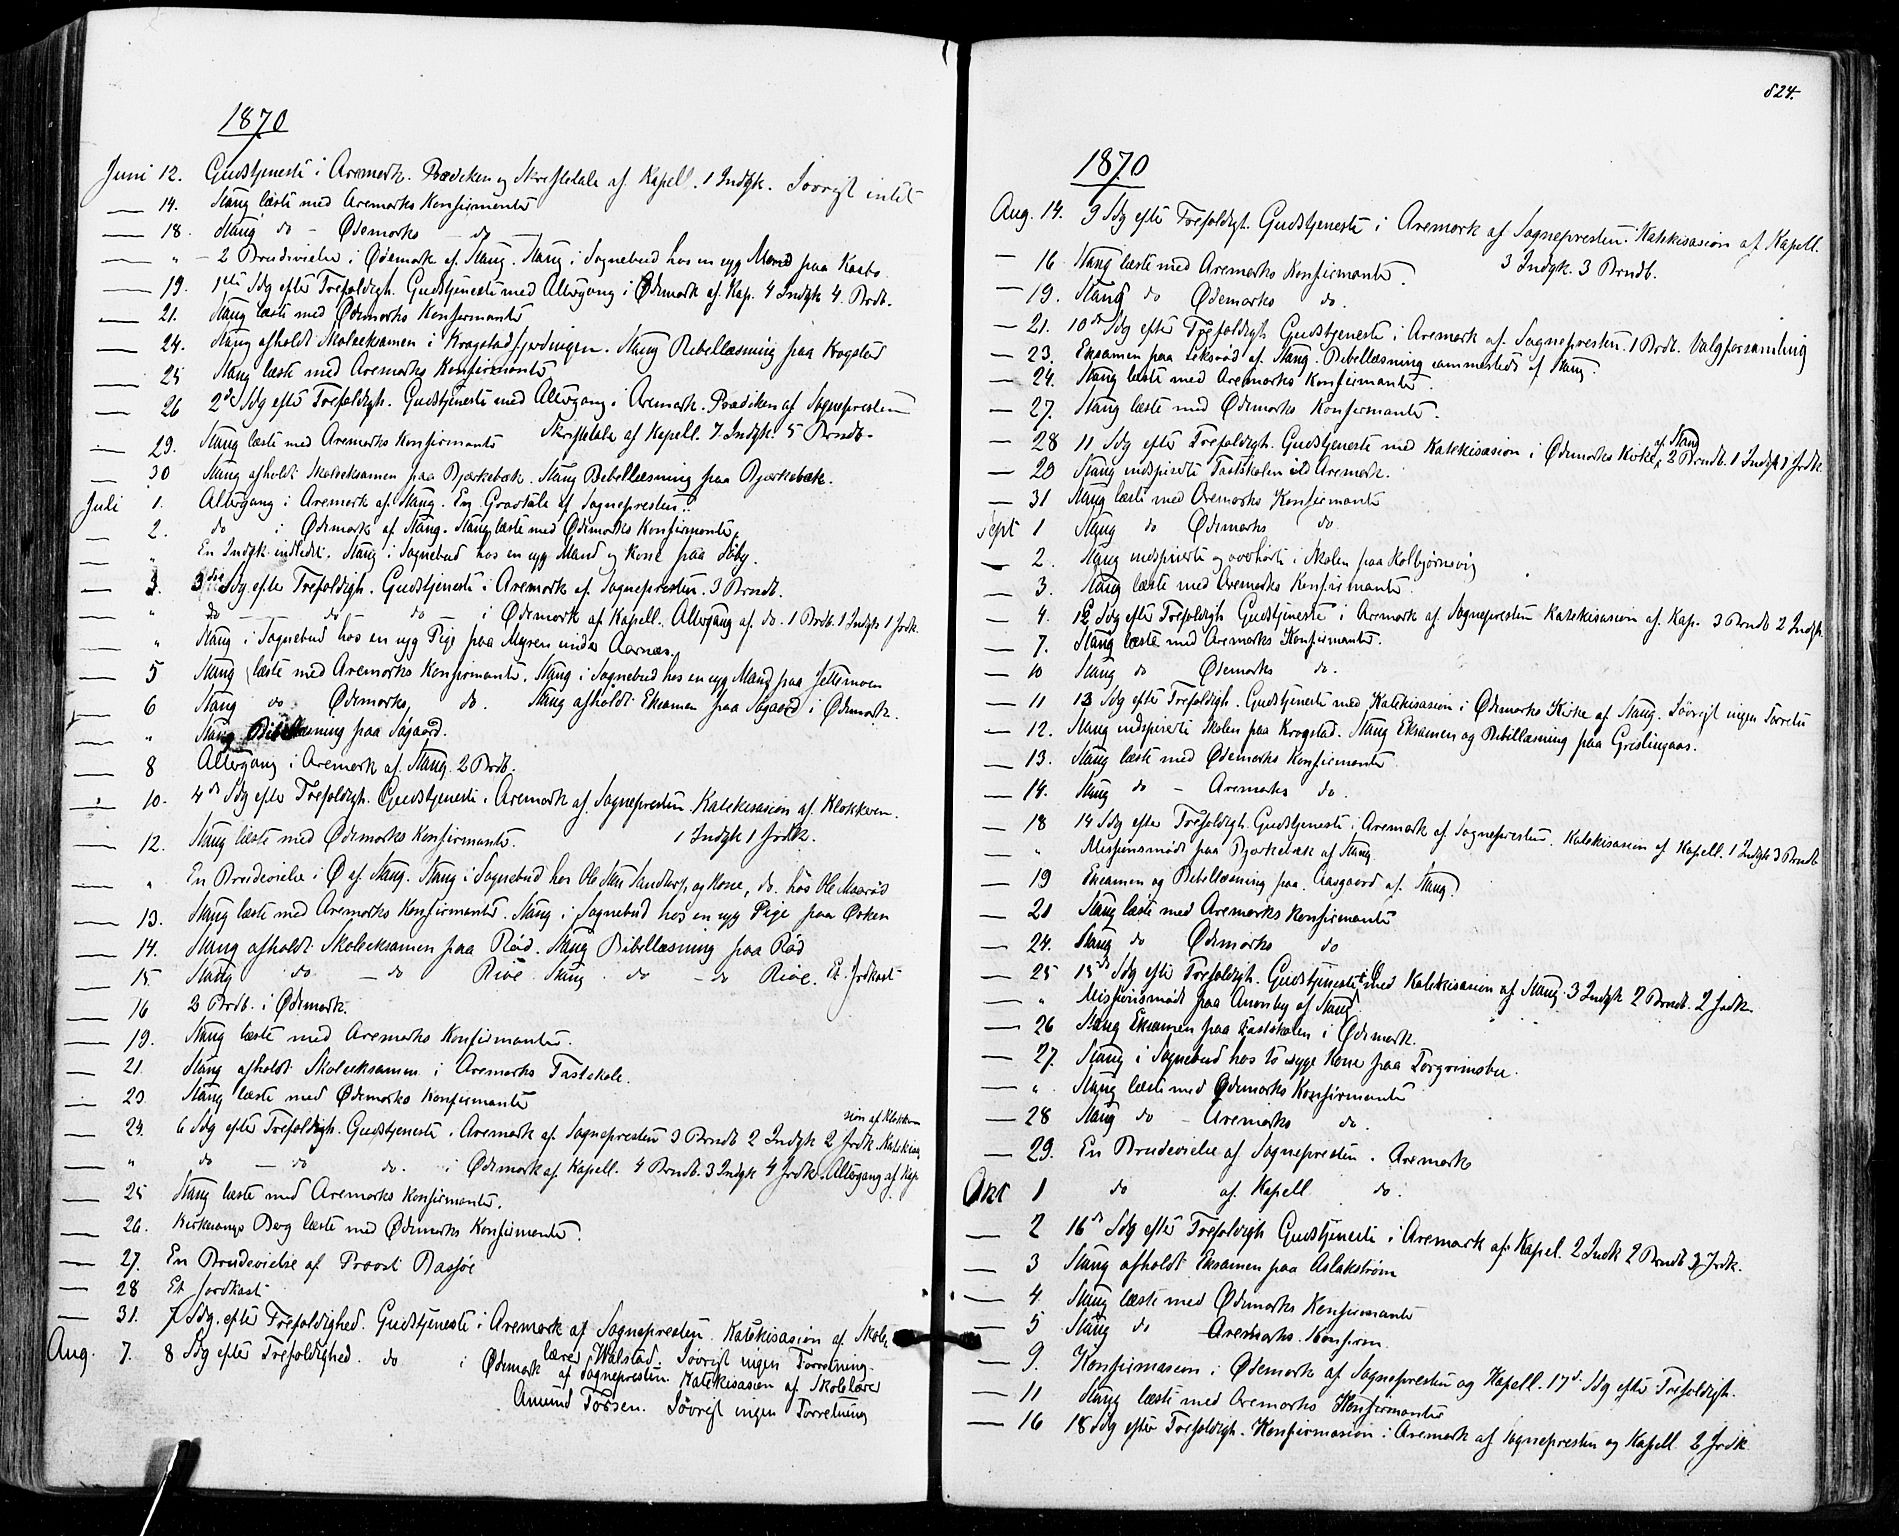 1870
Juni 12. Gudstjeneste i Aremark. Prædiken og Skriftetale af Kapell. 1 Indgk. Iøvrigt intet
— 14. Stang læste med Aremarks Konfirmanter
— 18. Stang do – Ødemarks – do
— " – 2 Brudevielser i Ødemark af Stang. Stang i Sognebud hos en syg Mand paa Kaabo
— 19. 1ste Sdg efter Trefoldigh. Gudstjeneste med Altergang i Ødemark af Kap. 4 Indgk 4. Brdb.
— 21. Stang læste med Ødemarks Konfirmanter
— 24. Stang afholdt Skoleeksamen i Kragstadfjerdingen. Stang Bibellæsning paa Kragstad
— 25 Stang læste med Aremarks Konfirmanter
— 26 2d Sdg efter Trefoldigh. Gudstjeneste med Altergang i Aremark. Prædiken af Sognepresten
Skriftetale af Kapell. 7 Indgk. 5 Brndb.
— 29. Stang læste med Aremarks Konfirmanter
— 30 Stang afholdt Skoleeksamen paa Bjærkebæk. Stang Bibellæsning paa Bjærkebæk.
Juli 1. Altergang i Aremark af Stang. En Gravtale af Sognepresten.
— 2. do i Ødemark af Stang. Stang læste med Ødemarks Konfirmanter,
— " En Indgk indledet. Stang i Sognebud hos en syg Mand og Kone paa Søby.
— 3. 3die Sdg efter Trefoldigh. Gudstjeneste i Aremark af Sognepresten. 3 Brndb.
— " do — do do i Ødemark af Kapell. Altergang af do. 1 Brdb. 1 Indgk 1 Jrdk.
— " Stang i Sognebud hos en syg Pige paa Myren under Aarnæs.
— 5 Stang læste med Aremarks Konfirmanter. Stang i Sognebud hos en syg Mand paa Jettemoen
— 6 Stang do Ødemarks do. Stang afholdt Eksamen paa Søgaard i Ødemark.
— " Stang Bibellæsning paa Søgaard.
— 8 Altergang i Aremark af Stang. 2 Brdb.
— 10. 4de Sdg efter Trefoldigh. Gudstjeneste i Aremark af Sognepresten. Katekisasion af Klokkeren.
1 Indgk 1 Jrdk.
— 12. Stang læste med Ødemarks Konfirmanter.
— " En Brudevielse i Ø af Stang. Stang i Sognebud hos Ole Sandtorp og Kone, do. hos Ole Maarød
— 13. Stang læste med Aremarks Konfirmanter. Stang i Sognebud hos en syg Pige paa Ørken
— 14. Stang afholdt Skoleeksamen paa Rød. Stang Bibellæsning paa Rød
— 15. Stang do – do Riøe. Stang do – do Riøe. Et Jordkast
— 16 2 Brdb. i Ødemark.
— 19. Stang læste med Aremarks Konfirmanter.
— 21. Stang afholdt Skoleeksamen i Aremarks Fastskole.
— 23 Stang læste med Ødemarks Konfirmanter
— 24. 6 Sdg efter Trefoldigh. Gudstjeneste i Aremark af Sognepresten 3 Brndb 2 Indgk 2 Jrdk. Katekisa
sion af Klokkeren
— " do — do do. i Ødemark af Kapell. 4 Brndb. 3 Indgk 4 Jrdk. Altergang af Kap
— 25 Stang læste med Aremarks Konfirmanter.
— 26. Kirkesanger Berg læste med Ødemarks Konfirmanter.
— 27. En Brudevielse af Provst Bassøe
— 28 Et Jordkast
— 31. 7 Sdg. efter Trefoldighed. Gudstjeneste i Aremark af Sognepresten. Katekisasion af Skole,
lærer Walstad. Iøvrigt ingen Forretning.
Aug. 7. 8 Sdg efter Trefoldighed. do i Ødemark af Sognepresten. Katekisasion af Skolelærer
Amund Tossen. Iøvrigt ingen Forretning
824.
1870
Aug. 14. 9 Sdg efter Trefoldigt. Gudstjeneste i Aremark af Sognepresten. Katekisasion af Kapell.
3 Indgk. 3 Brndb.
— 16 Stang læste med Aremarks Konfirmanter.
— 19. Stang do Ødemarks do.
— 21. 10de Sdg efter Trefoldigh Gudstjeneste i Aremark af Sognepresten. 1 Brdb. Valgforsamling
— 23. Eksamen paa Leksrød af Stang. Bibellæsning sammesteds af Stang.
— 24. Stang læste med Aremarks Konfirmanter.
— 27. Stang læste med Ødemarks Konfirmanter.
— 28 11 Sdg efter Trefoldigh. Gudstjeneste med Katekisasion i Ødemarks Kirke af Stang. 2 Brndb. 1 Indgk 1 Jrdk
— 29 Stang indspiserte Fastskolen i Aremark.
— 31 Stang læste med Aremarks Konfirmanter
Sept 1 Stang do Ødemarks do
— 2. Stang indspiserte og overhørte i Skolen paa Kolbjørnsvig
— 3. Stang læste med Aremarks Konfirmanter.
— 4. 12 Sdg efter Trefoldigh Gudstjeneste i Aremark af Sognepresten Katekisasion af Kap. 3 Brndb 2 Indgk.
— 7. Stang læste med Aremarks Konfirmanter.
— 10 Stang do Ødemarks do.
— 11 13 Sdg efter Trefoldigh. Gudstjeneste med Katekisasion i Ødemarks Kirke af Stang. Iøvrigt ingen Forretn
— 12. Stang indspiserte Skolen paa Kragstad. Stang Eksamen og Bibellæsning paa Græslingaas.
— 13. Stang læste med Ødemarks Konfirmanter
— 14. Stang do – Aremarks do.
— 18 14 Sdg efter Trefoldigh. Gudstjeneste i Aremark af Sognepresten. Katekisasion af Kapell. 1 Indgk 3 Brndb
— " Missionsmøde paa Bjærkebæk af Stang
— 19 Eksamen og Bibellæsning paa Aasgaard af Stang.
— 21 Stang læste med Aremarks Konfirmanter
— 24. Stang do Ødemarks do
— 25 15de Sdg efter Trefoldigh. Gudstjeneste i Ø med Katekisasion af Stang. 3 Indgk 2 Brndb. 2 Jrdk
— " Missionsmøde paa Amonby af Stang.
— 26 Stang Eksamen paa Fastskolen i Ødemark.
— 27. Stang i Sognebud hos to syge Kone paa Torgrimsbu.
— " Stang læste med Ødemarks Konfirmanter
— 28 Stang do – Aremarks do.
— 29. En Brudevielse af Sognepresten. Aremarks
Okt 1 do af Kapell do.
— 2 16de Sdg efter Trefoldigh Gudstjeneste i Aremark af Kapel. 2 Indk 2 Brndb 3 Jrdk.
— 3 Stang afholdt Eksamen paa Aslakstrøm
— 4. Stang læste med Ødemarks Konfirmanter
— 5 Stang do Aremarks Konfirm.
— 9. Konfirmasion i Ødemark af Sognepresten og Kapell. 17d Sdg efter Trefoldigh.
— 11 Stang læste med Aremarks Konfirmanter
— 16 18 Sdg efter Trefoldigh. Konfirmasion i Aremark af Sognepresten og Kapell. 2 Jrdk